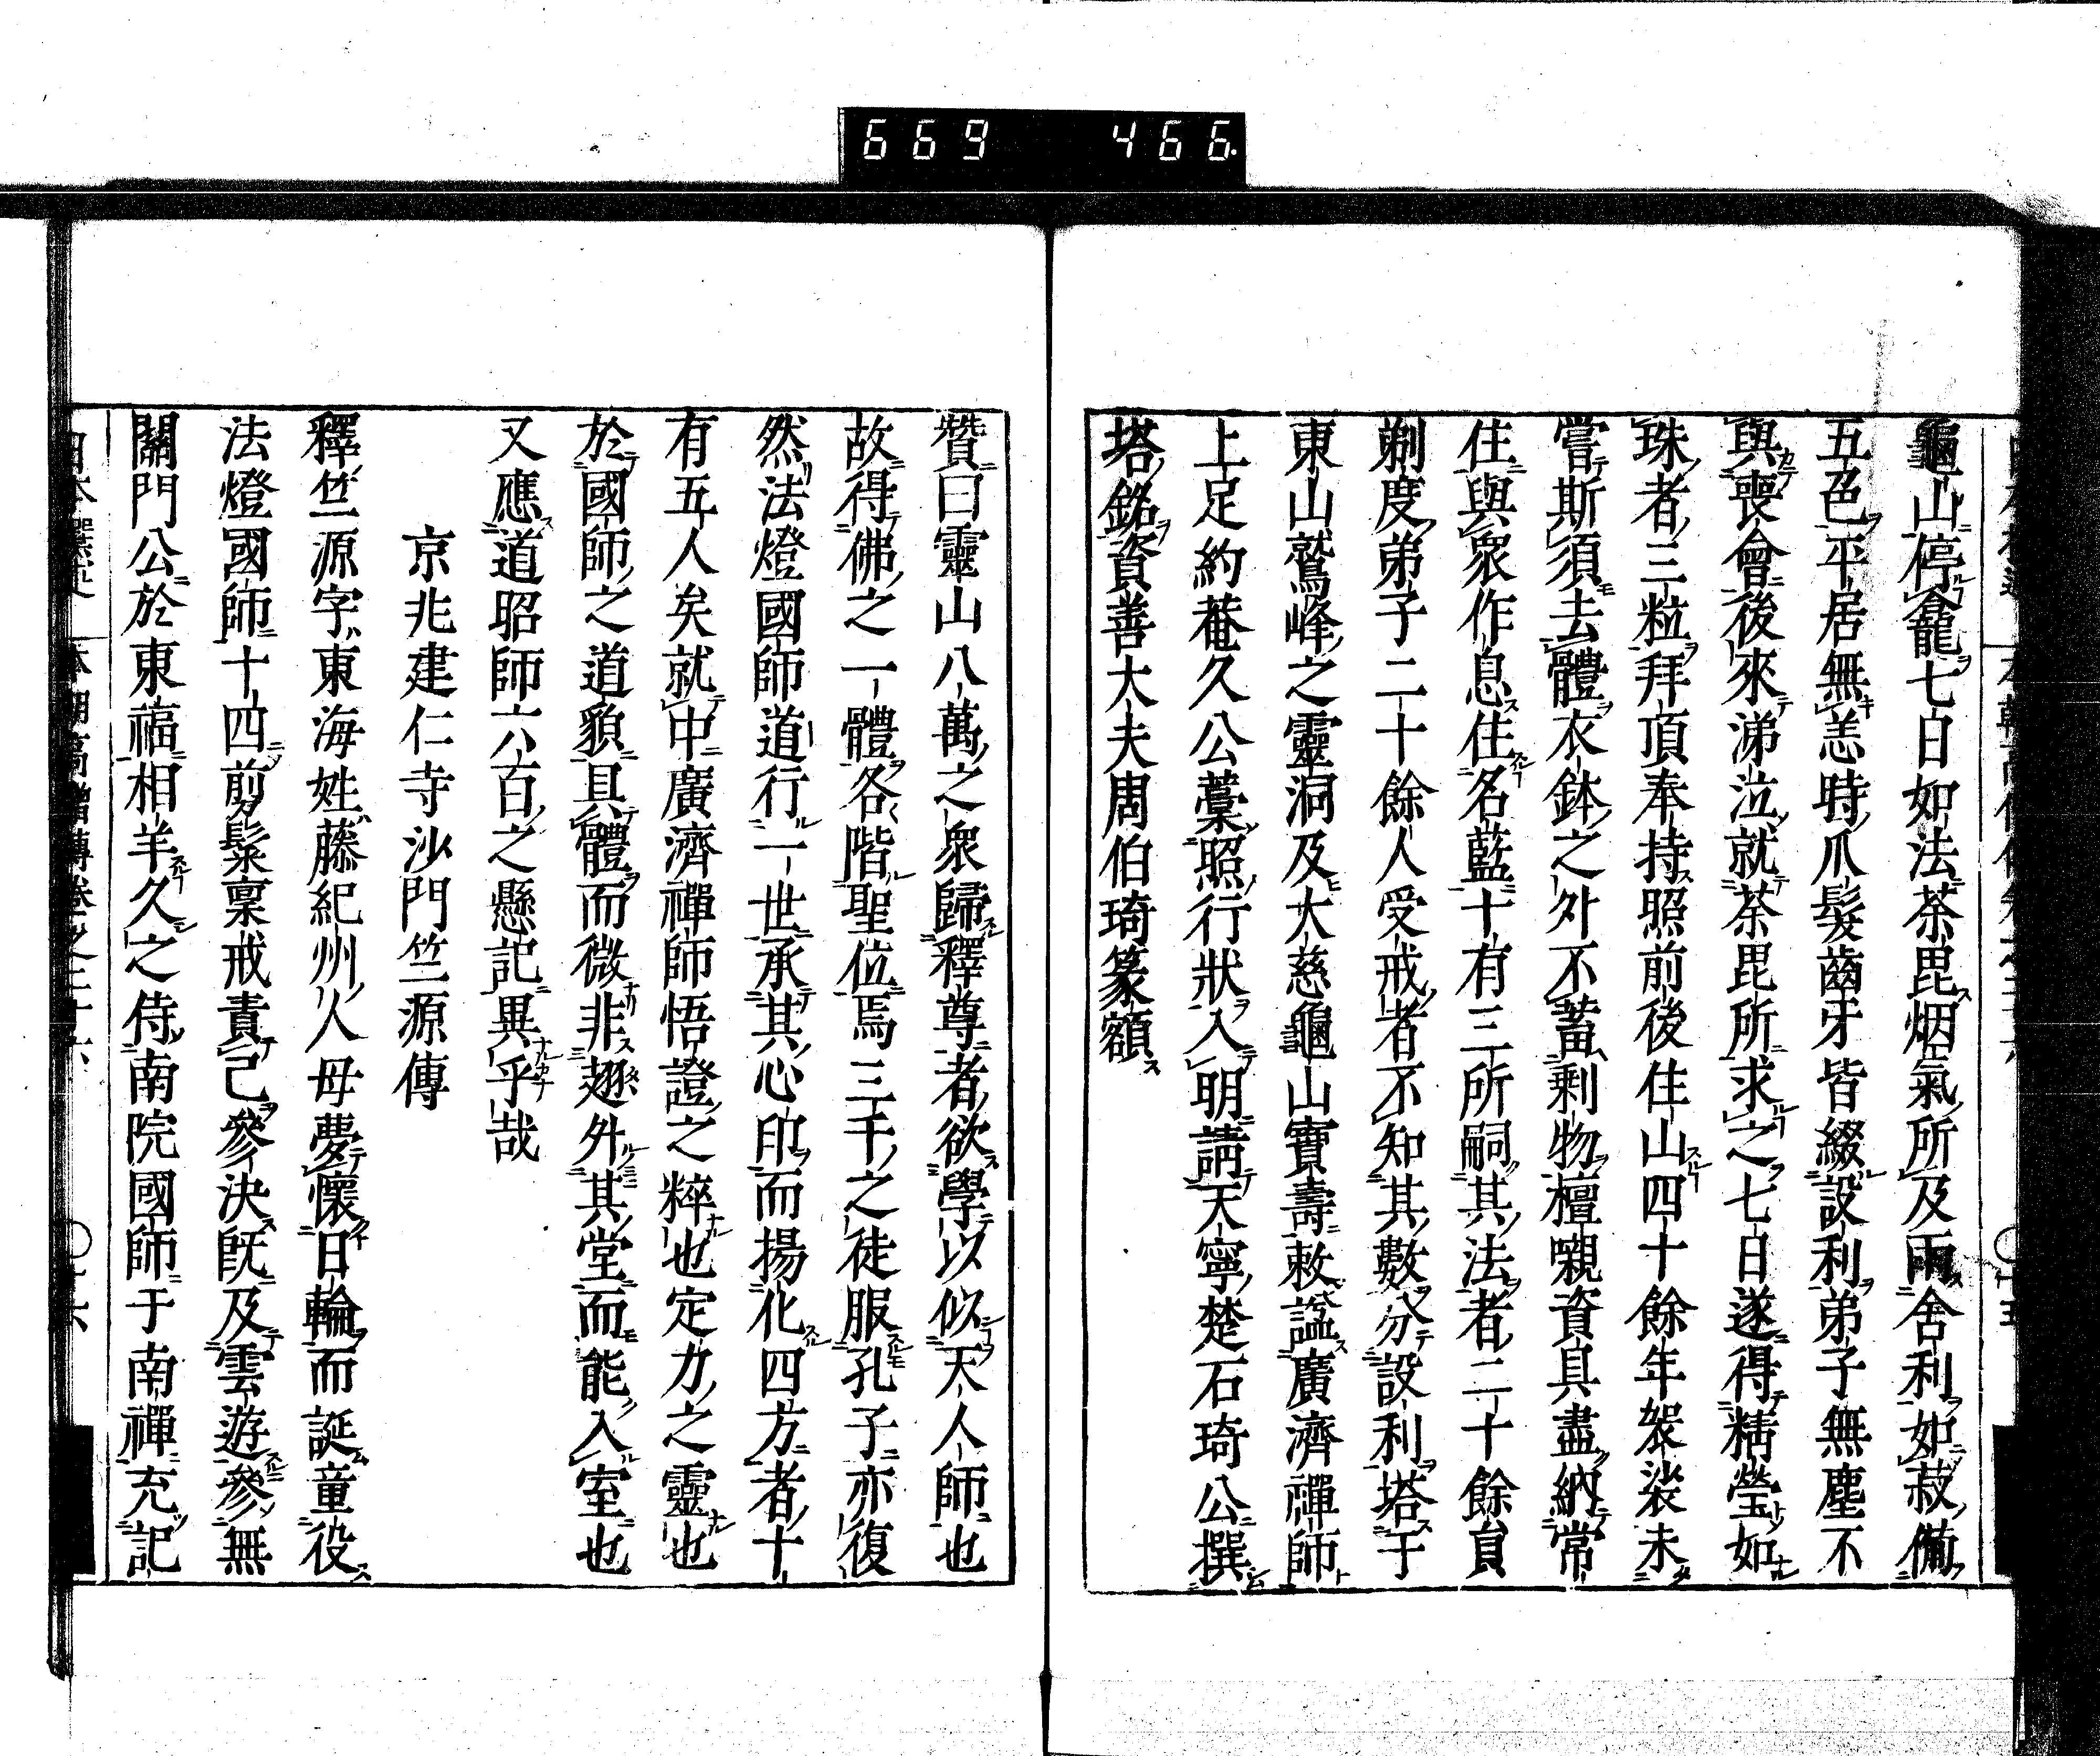 669 466
龜山停龕七日如法荼毘烟氣所及雨舍利如菽備
五色平居無恙時爪髮齒牙皆綴設利弟子無塵不
與喪會後來涕泣就荼毘所求之七日遂得精瑩如
珠者三粒拜頂奉持照前後住山四十餘年袈裟未
嘗斯須去體衣鉢之外不蓄剩物檀嚫資具盡納常
住與衆作息住名藍十有三所嗣其法者二十餘員
剃度弟子二十餘人受戒者不知其數分設利塔于
東山鷲峰之靈洞及大慈龜山寶壽敕謚廣濟禪師
上足約菴久公藁照行狀入明請天寧楚石琦公撰
塔銘資善大夫周伯琦篆額
贊曰靈山八萬之衆歸釋尊者欲學以似天人師也
故得佛之一體各階聖位焉三千之徒服孔子亦復
然法燈國師道行一世承其心印而揚化四方者十
有五人矣就中廣濟禪師悟證之粹也定力之靈也
於國師之道貌具體而微非翅外其堂而能入室也
又應道昭師六百之懸記異乎哉
京兆建仁寺沙門竺源傳
釋竺源字東海姓藤紀州人母夢懷日輪而誕童役
法燈國師十四剪鬚稟戒責己參決既及雲遊參無
關門公於東福相羊久之侍南院國師于南禪充記